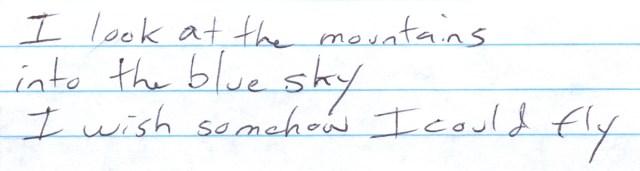 I look at the mountains
into the blue sky
I wish somehow I could fly